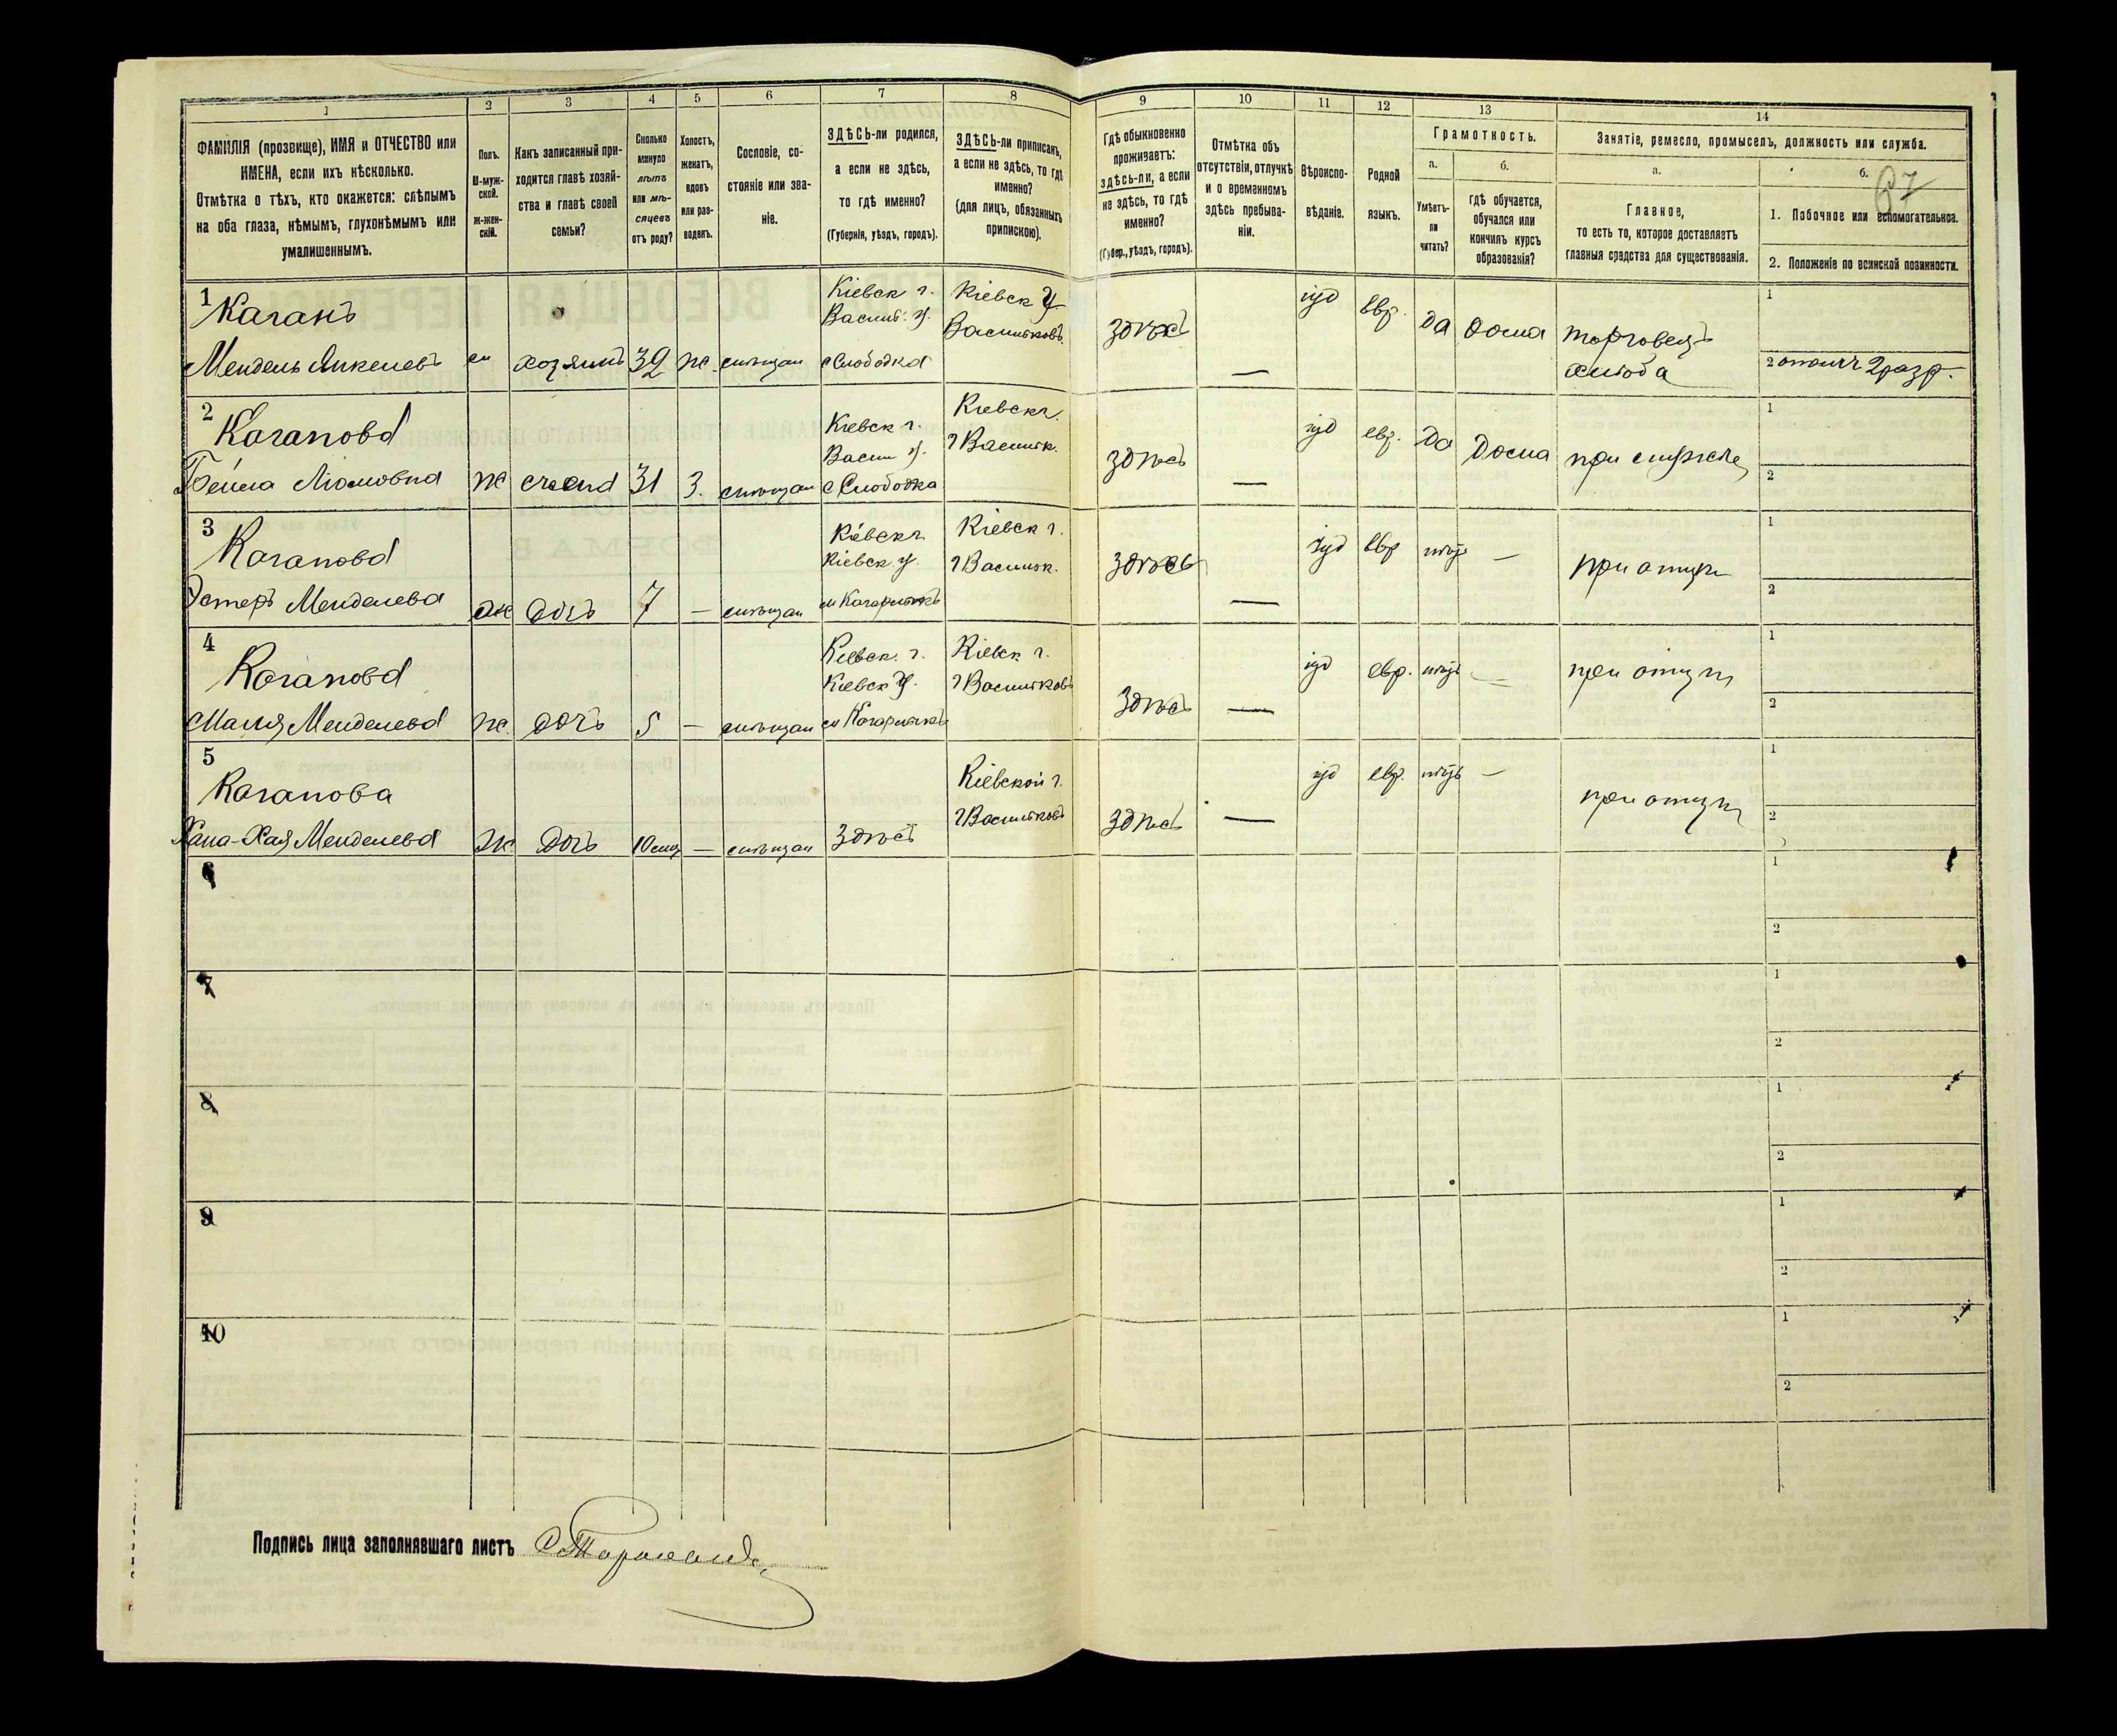 1 2 3 4 5 6 7 8 9 10 11 12 13 14
ФАМИЛІЯ (прозвище), ИМЯ и ОТЧЕСТВО или
ИМЕНА, если ихъ нѣсколько.
Отмѣтка о тѣхъ, кто окажется: слѣпымъ
на оба глаза, нѣмымъ, глухонѣмымъ или
умалишеннымъ.
Полъ.
М-муж-
ской.
ж-жен-
скій.
Какъ записанный при-
ходится главѣ хозяй-
ства и главѣ своей
семьи?
Сколько
минуло
лѣтъ
или мѣ-
сяцевъ
отъ роду?
Холостъ,
женатъ,
вдовъ
или раз-
веденъ.
Сословіе, со-
стояніе или зва-
ніе.
ЗДѢСЬ-ли родился,
а если не здѣсь,
то гдѣ именно?
(Губернія, уѣздъ, городъ).
ЗДѢСЬ-ли приписанъ,
а если не здѣсь, то гдѣ
именно?
(для лицъ, обязанныхъ
припискою).
Гдѣ обыкновенно
проживаетъ:
здѣсь-ли, а если
не здѣсь, то гдѣ
именно?
(Губер., уѣздъ, городъ).
Отмѣтка объ
отсутствіи, отлучкѣ
и о временномъ
здѣсь пребыва-
ніи.
Вѣроиспо-
вѣданіе.
Родной
языкъ.
Грамотность.
а.
Умѣетъ-
ли
читать?
б.
гдѣ обучается,
обучался или
кончилъ курсъ
образованія?
Занятіе, ремесло, промыселъ, должность или служба.
а.
Главное,
то есть то, которое доставляетъ
главныя средства для существованія.
б.
67
1. Побочное или вспомогательное.
2. Положеніе по воинской повинности.
1
Каганъ
Мендель Янкелевъ м хозяинъ 32 ж. мѣщан
Кіевск г.
Васил. у.
с Слободка
Кіевск у.
Васильковъ.
здѣсь
—
іуд
евр.
да
дома
торговецъ
хлѣба
1
2 ополч 2 разр.
2
Каганова
Бейла Ліомовна ж жена 31 з. мѣщан
Кіевск г.
Васил у.
с Слободка
Кіевск г.
г Васильк.
здѣсь
—
іуд
евр.
да
дома
при мужѣ
1
2
3
Каганова
Эстеръ Менделева ж дочь 7 — мѣщан
Кіевск г.
Кіевск у.
м Кагарлыкъ
Кіевск г.
г Васильк.
здѣсь
—
іуд
евр
нѣтъ
—
при отцѣ
1
2
4
Каганова
Малия Менделева ж. дочь 5 — мѣщан
Кіевск. г.
Кіевск у.
м Кагарлыкъ
Кіевск г.
г Васильковъ
здѣсь
—
іуд
евр.
нѣтъ
—
при отцѣ
1
2
5
Каганова
Хана-Хая Менделева ж дочь 10 мѣс — мѣщан
здѣсь
Кіевской г.
г Васильковъ
здѣсь
—
іуд
евр.
нѣтъ
—
при отцѣ
1
2
6
1
2
7
1
2
8
1
2
9
1
2
10
1
2
Подпись лица заполнявшаго листъ